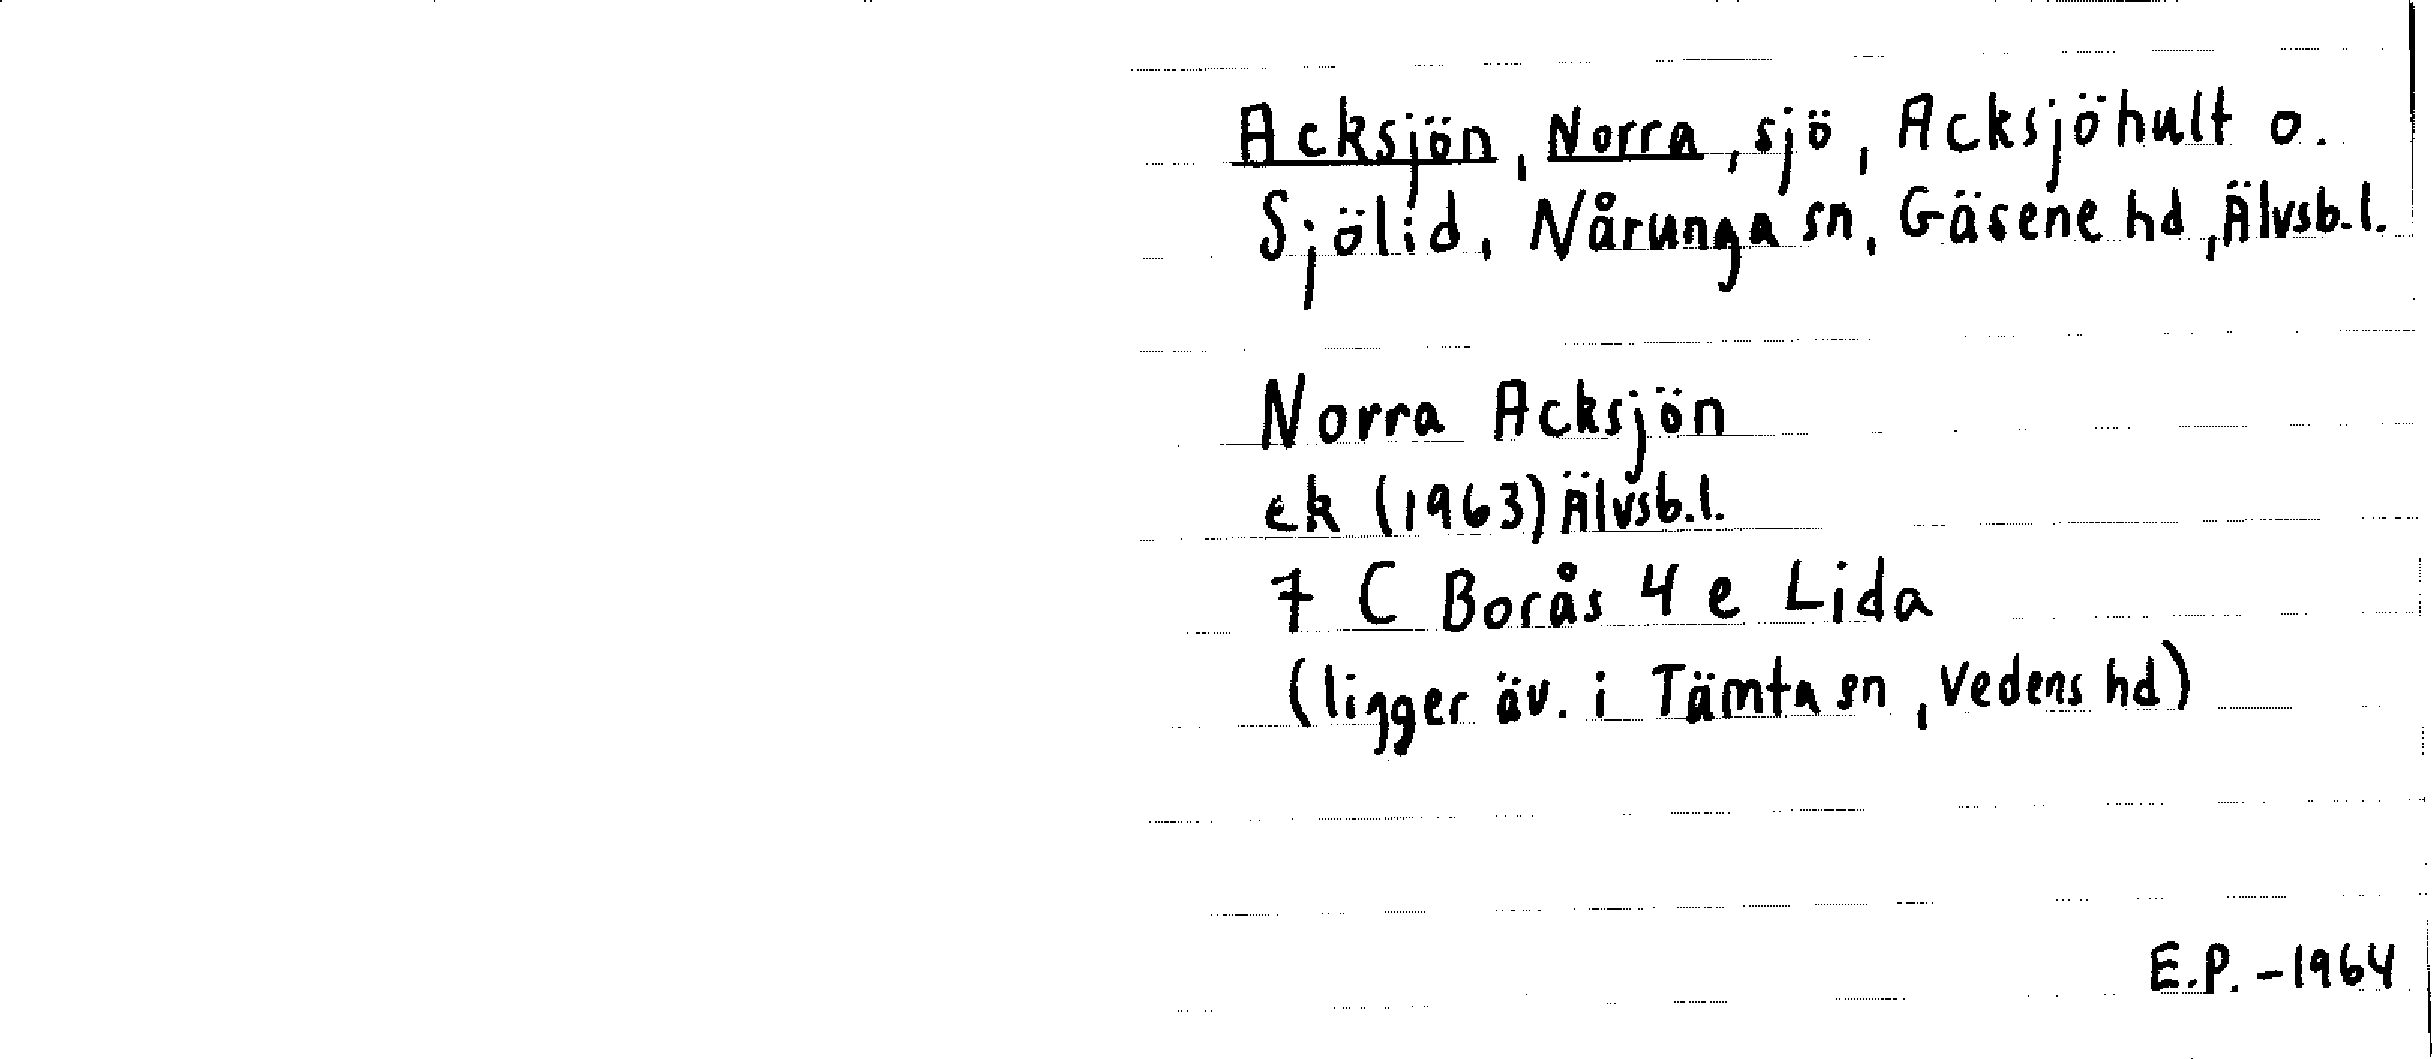 Acksjön, Norra, sjö, Acksjöhult o.
Sjölid, Nårunga sn, Gäsene hd, Älvsb.l.
Norra Acksjön
ek (1963) Älvsb.l.
7 C Borås 4 e Lida
(ligger äv. i Tämta sn, Vedens hd)
E.P. -1964